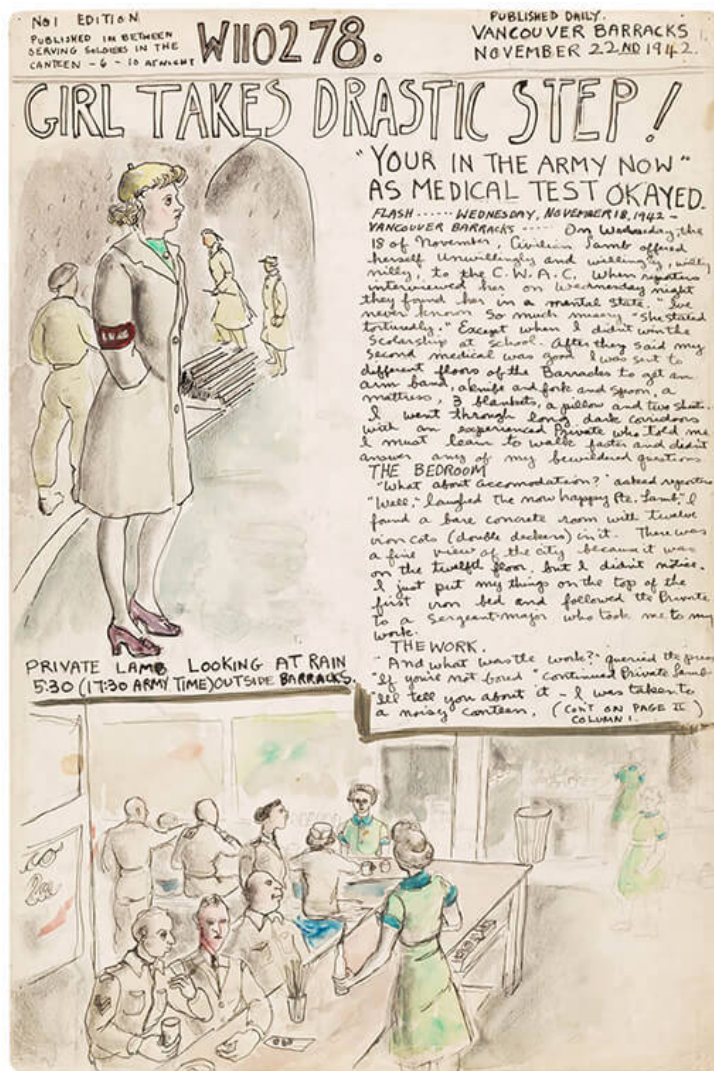 No1 EDITION
PUBLISHED IN BETWEEN
SERVING SOLDIERS IN THE
CANTEEN - 6 - 10 AT NIGHT
W110278.
PUBLISHED DAILY.
VANCOUVER BARRACKS
NOVEMBER 22ND 1942.
GIRL TAKES DRASTIC STEP!
"YOUR IN THE ARMY NOW"
AS MEDICAL TEST OKAYED.
FLASH ...... WEDNESDAY, NOVEMBER 18, 1942 -
VANCOUVER BARRACKS ..... On Wednesday, the
18 of November, Civilian Lamb offered
herself unwillingly and willingly, willy
nilly, to the C.W.A.C. When reporters
interviewed her on Wednesday night
they found her in a mental state. "Ive
never known so much misery "She stated
torturedly." Except when I didn't win the
Scolarship at school. After they said my
second medical was good I was sent to
different floors of the Barracks to get an
arm band, a knife and fork and spoon, a
mattress, 3 blankets, a pillow and two sheets.
I went through long dark corridors
with an experienced Private who told me
I must learn to walk faster and didn't
answer any of my bewildered questions
THE BEDROOM
"What about accomodation?" asked reporters
"Well," laughed the now happy Pte. Lamb," I
found a bare concrete room with twelve
iron cots (double deckers) in it. There was
a fine view of the city because it was
on the twelfth floor, but I didn't notice.
I just put my things on the top of the
first iron bed and followed the Private
to a sergeant-major who took me to my
work.
THE WORK.
"And what was the work?" queried the press
"If you're not bored" continued Private Lamb
"I'll tell you about it - I was taken to
a noisy canteen, (CON'T ON PAGE II
COLUMN 1.
PRIVATE LAMB LOOKING AT RAIN
5:30 (17:30 ARMY TIME) OUTSIDE BARRACKS.